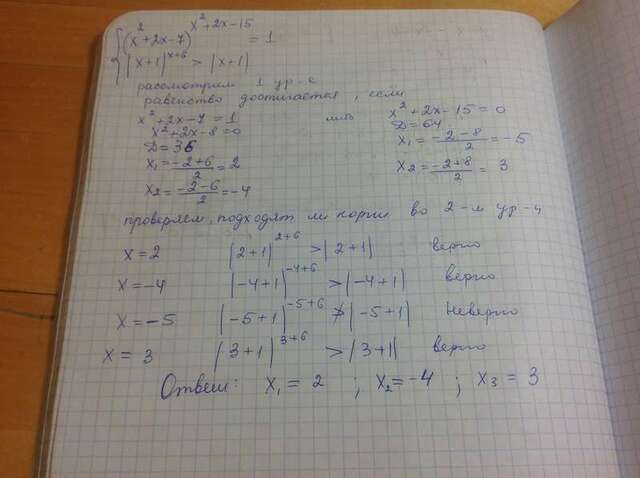 { (x²+2x-7)^(x²+2x-15) = 1
|x+1|^(x+6) > |x+1|
рассмотрим 1 ур-е
равенство достигается, если
x²+2x-7=1 либо x²+2x-15=0
x²+2x-8=0 D=64
D=36 x₁=(-2-8)/2=-5
x₁=(-2+6)/2=2 x₂=(-2+8)/2=3
x₂=(-2-6)/2=-4
проверяем, подходят ли корни во 2-м ур-и
x=2 |2+1|^(2+6) >|2+1| верно
x=-4 |-4+1|^(-4+6) >|-4+1| верно
x=-5 |-5+1|^(-5+6) ≯ |-5+1| Неверно
x=3 |3+1|^(3+6) >|3+1| верно
Ответ: x₁=2 ; x₂=-4 ; x₃=3